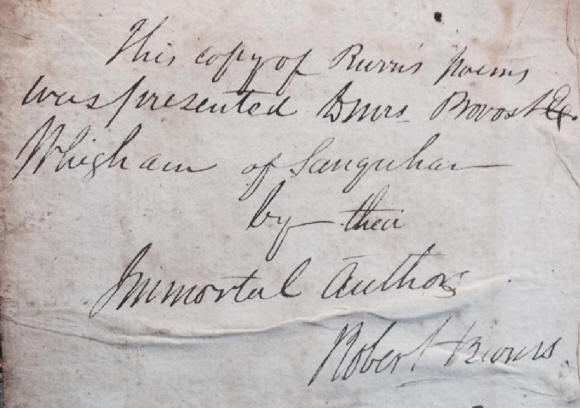 This copy of Burns poems
was presented to Mrs Provost
Whigham of Sanquhar
by their
Immortal Author
Robert Burns.